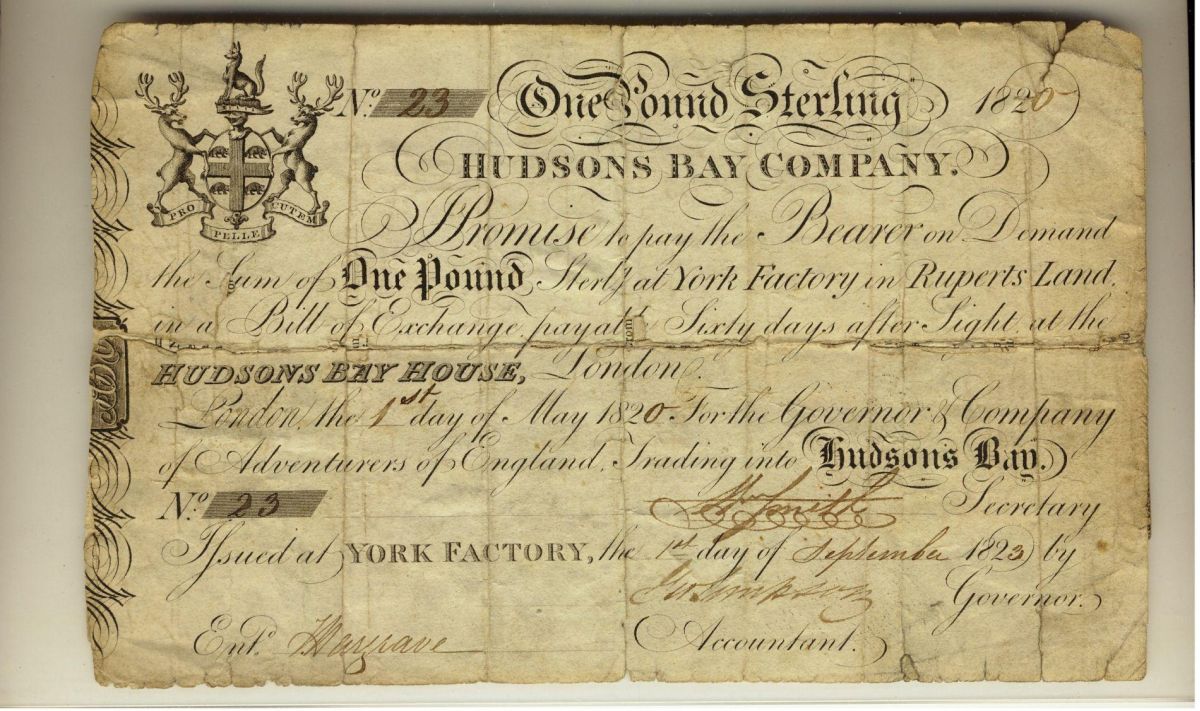 No. 23 One Pound Sterling 1820
HUDSONS BAY COMPANY.
PRO PELLE CUTEM
I Promise to pay the Bearer on Demand
the Sum of One Pound Sterlg. at York Factory in Ruperts Land
in a Bill of Exchange payable Sixty days after Sight at the
HUDSONS BAY HOUSE, London.
London, the 1st day of May 1820. For the Governor & Company
of Adventurers of England, Trading into Hudsons Bay.
No. 23
Wm Smith Secretary
Issued at YORK FACTORY, the 1st day of September 1823 by
Geo Simpson Governor.
Entd. J Hargrave Accountant.